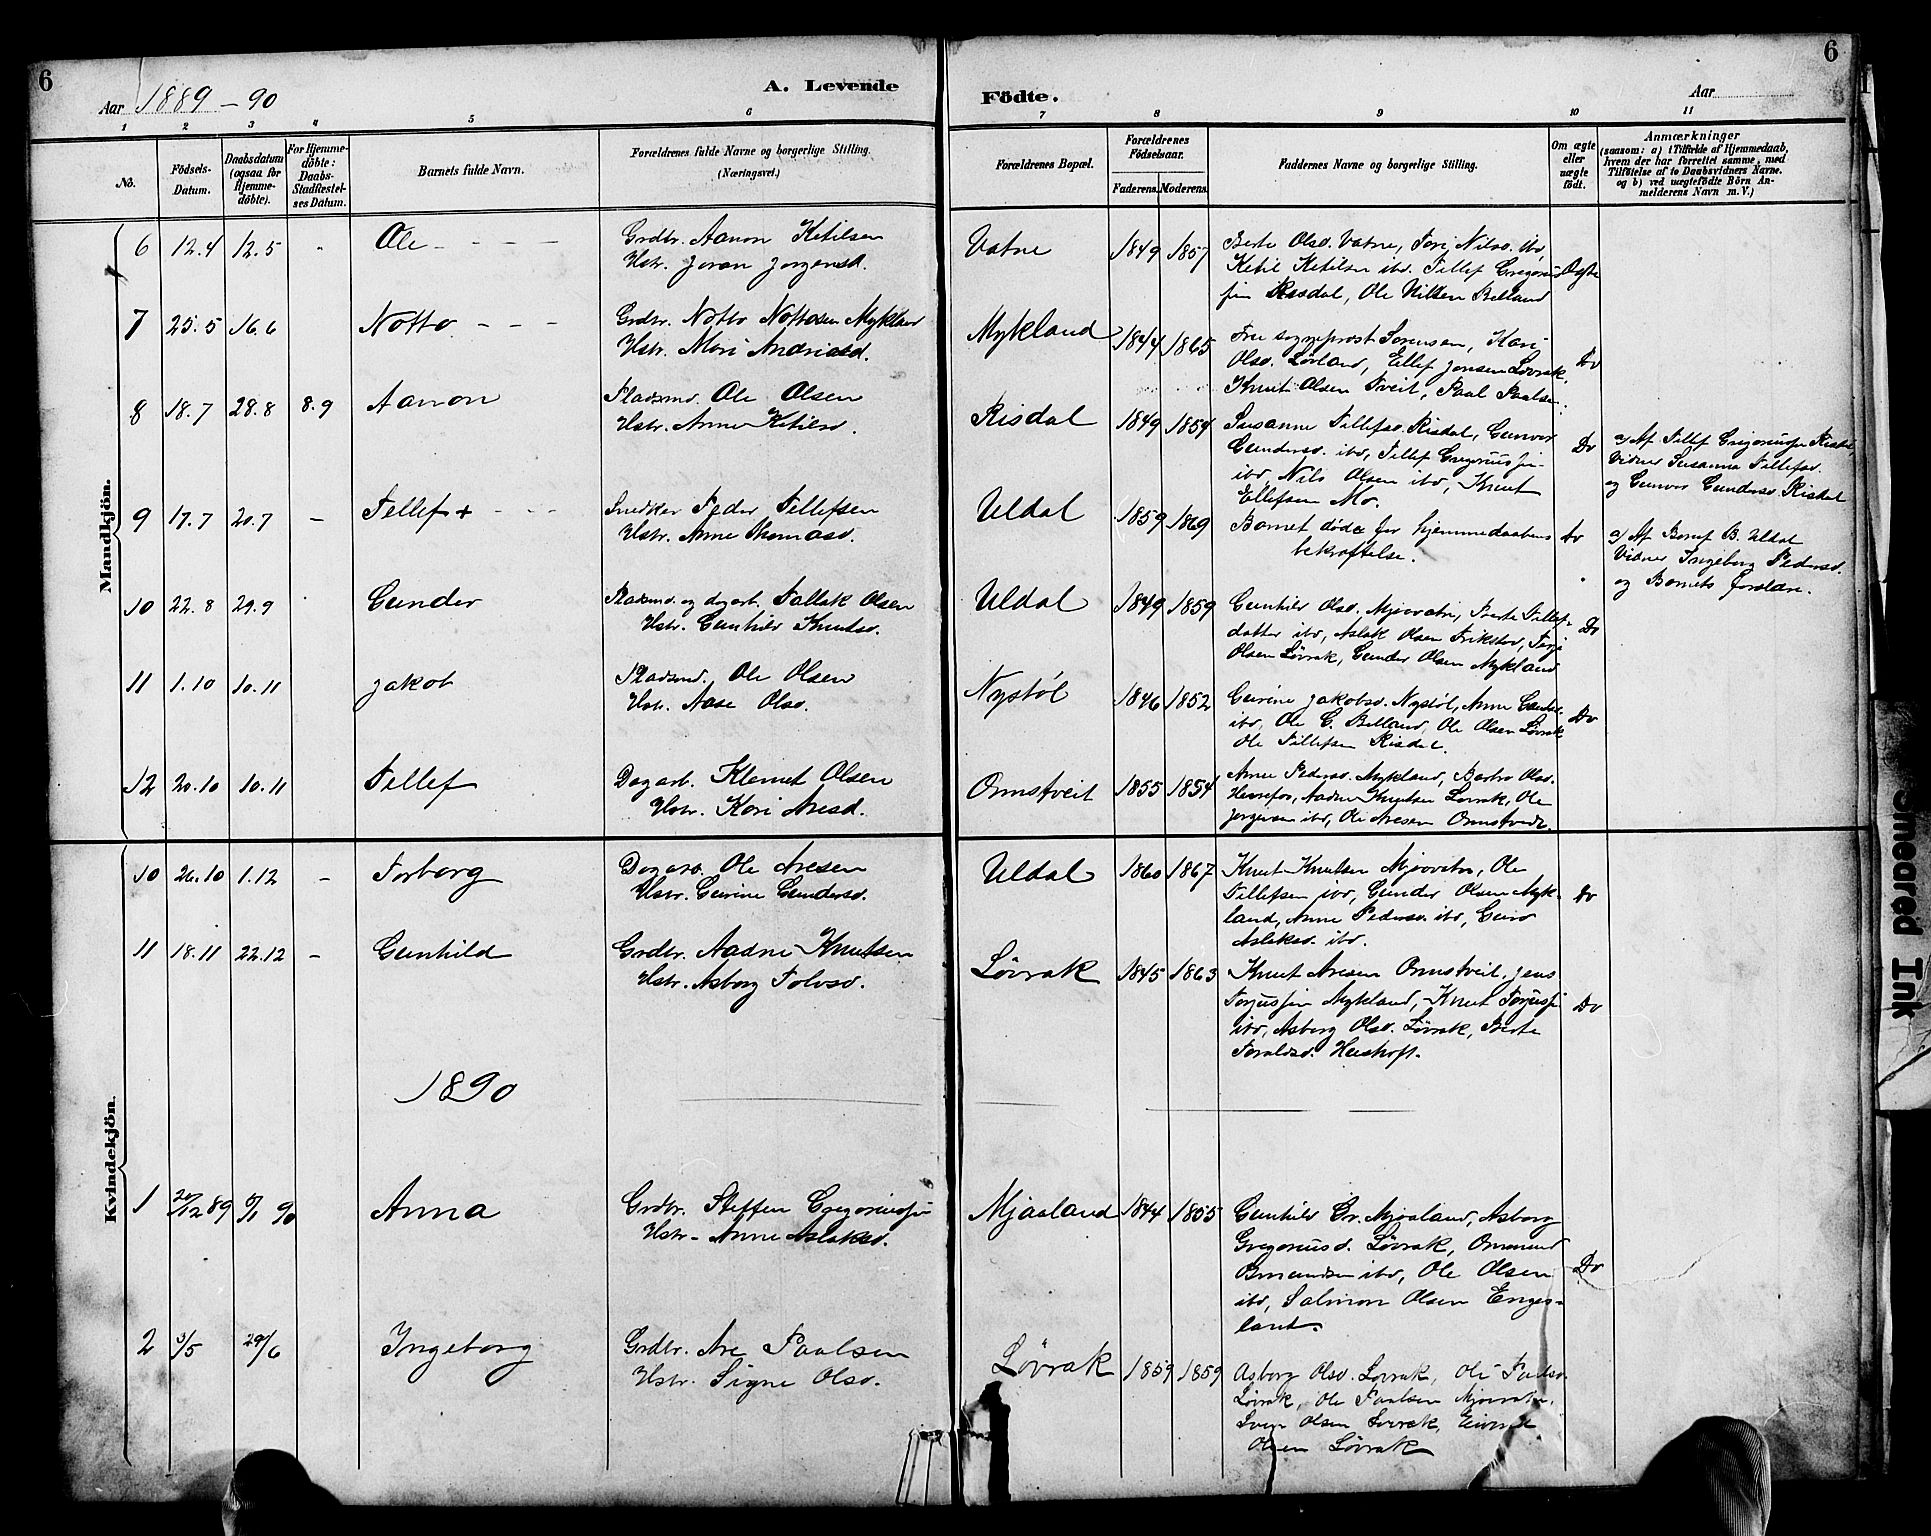 6
6
Aar 1889-90
A. Levende
Födte.
Aar
1 2 3 4 5 6 7 8 9 10 11
No.
Födsels-
Datum.
Daabsdatum
(ogsaa for
Hjemme-
döbte).
For Hjemme-
döbte:
Daabs-
Stadfæstel-
ses Datum.
Barnets fulde Navn.
Forældrenes fulde Navne og borgerlige Stilling.
(Næringsvei.)
Forældrenes Bopæl.
Forældrenes
Födselsaar.
Faderens.
Moderens.
Faddernes Navne og borgerlige Stilling.
Om ægte
eller
uægte
födt.
Anmærkninger
(saasom: a) i Tilfælde af Hjemmedaab,
hvem der har forrettet samme, med
Tilföielse af to Daabsvidners Navne.
og b) ved uægtefödte Börn An-
melderens Navn m. V.)
Mandkjön.
6 12.4 12.5 - Ole - - - -
Grdbr. Aanon Ketilsen
Hstr. Joran Jorgensd.
Vatne 1849 1857
Berte Olsd. Vatne, Tori Nilsd. ibd,
Ketil Ketilsen ibd. Tellef Gregorius-
sen Risdal, Ole Nilsen Belland
Ægte
7 25.5 16.6 Notto - - -
Grdbr. Notto Nottosen Mykland
Hstr. Mari Andreasd.
Mykland 1844 1865
Fru sogneprost Sorensen, Kari
Olsd. Lovland, Ellef Jensen Lovrak,
Knut Olsen Tveit, Paal Paalsen.
Do
8 18.7 28.8 8.9 Aanon
Pladsmd. Ole Olsen
Hstr. Anne Ketilsd.
Risdal 1849 1854
Susanne Tellefsd. Risdal, Gunvor
Gundersd. ibd, Tellef Gregoriussen
ibd, Nils Olsen ibd, Knut
Ellefsen Mo.
Do
a) Af Tellef Gregoriussen Risdal,
Vidner Susanna Tellefsd.
og Gunvor Gundersd. Risdal
9 17.7 20.7 - Tellef + - - -
Snedker Peder Tellefsen
Hstr. Anne Thomasd.
Uldal 1859 1869
Barnet döde för hjemmedaabens
bekræftelse.
Do
a) Af Berte B. Uldal
Vidner Ingeborg Pedersd.
og Barnets forældre.
10 22.8 29.9 Gunder
Pladsmd. og dagarb. Tallak Olsen
Hstr. Gunhild Knutsd.
Uldal 1849 1859
Gunhild Olsd. Mjovatn, Berte Tellefs-
datter ibd, Aslak Olsen Frikstad, Terje
Olsen Lövrak, Gunder Olsen Mykland
Do
11 1.10 10.11 Jakob
Pladsmd. Ole Olsen
Hstr. Aase Olsd.
Nystöl 1846 1852
Gurine Jakobsd. Nystöl, Anne Gundersd.
ibd, Ole G. Belland, Ole Olsen Lövrak
Ole Tellefsen Risdal.
Do
12 20.10 10.11 Tellef
Dagarb. Klemet Olsen
Hstr. Kari Aresd.
Ormstveit 1855 1854
Anne Pedersd. Mykland, Barbro Olsd.
Herefos, Aadne Knutsen Lovrak, Ole
Jorgensen ibd, Ole Aresen Ormstvedt.
Kvindekjön.
10 26.10 1.12 - Torborg
Dagarb. Ole Aresen
Hstr. Gurine Gundersd.
Uldal 1860 1867
Knut Knutsen Mjovatn, Ole
Tellefsen ibd, Gunder Olsen Myk-
land, Anne Pedersd. ibd, Guro
Aslaksd. ibd.
Do
11 18.11 22.12 - Gunhild
Grdbr. Aadne Knutsen
Hstr. Asborg Tolvsd.
Lövrak 1845 1863
Knut Aresen Ormstveit, Jens
Terjussen Mykland, Knut Terjussen
ibd, Asborg Olsd. Lövrak, Berte
Toraldsd. Heshoft.
Do
1890
1 20/12 89 6/1 90 Anna
Grdbr. Steffen Gregoriussen
Hstr. Anne Aslaksd.
Mjaaland 1844 1855
Gunhild Gr. Mjaaland, Asborg
Gregoriusd. Lövrak, Ommund
Omundsen ibd, Ole Olsen
ibd, Salmon Olsen Enges-
land.
Do
2 5/5 29/6 Ingeborg
Grdbr. Are Paalsen
Hstr. Signe Olsd.
Lövrak 1859 1859
Asborg Olsd. Lovrak, Ole Paulsen
Lövrak, Ole Paalsen Mjovatn,
Olsen Lovrak, Eivind
Olsen Lövrak
Smeared Ink